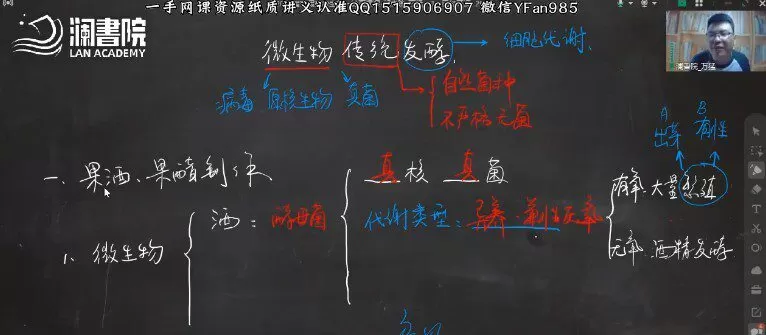 一手网课资源纸质讲义认准QQ1515906907 微信YFan985
澜書院
LAN ACADEMY
澜書院_万猛
微生物 传统 发酵. → 细胞代谢.
病毒 原核生物 真菌
自然菌种
不严格无菌
A 出芽
B 有性
一、果酒、果醋制作
1. 微生物
酒: 酵母菌
真核 真菌
代谢类型: 异养.兼性厌氧
有氧.大量繁殖
无氧.酒精发酵